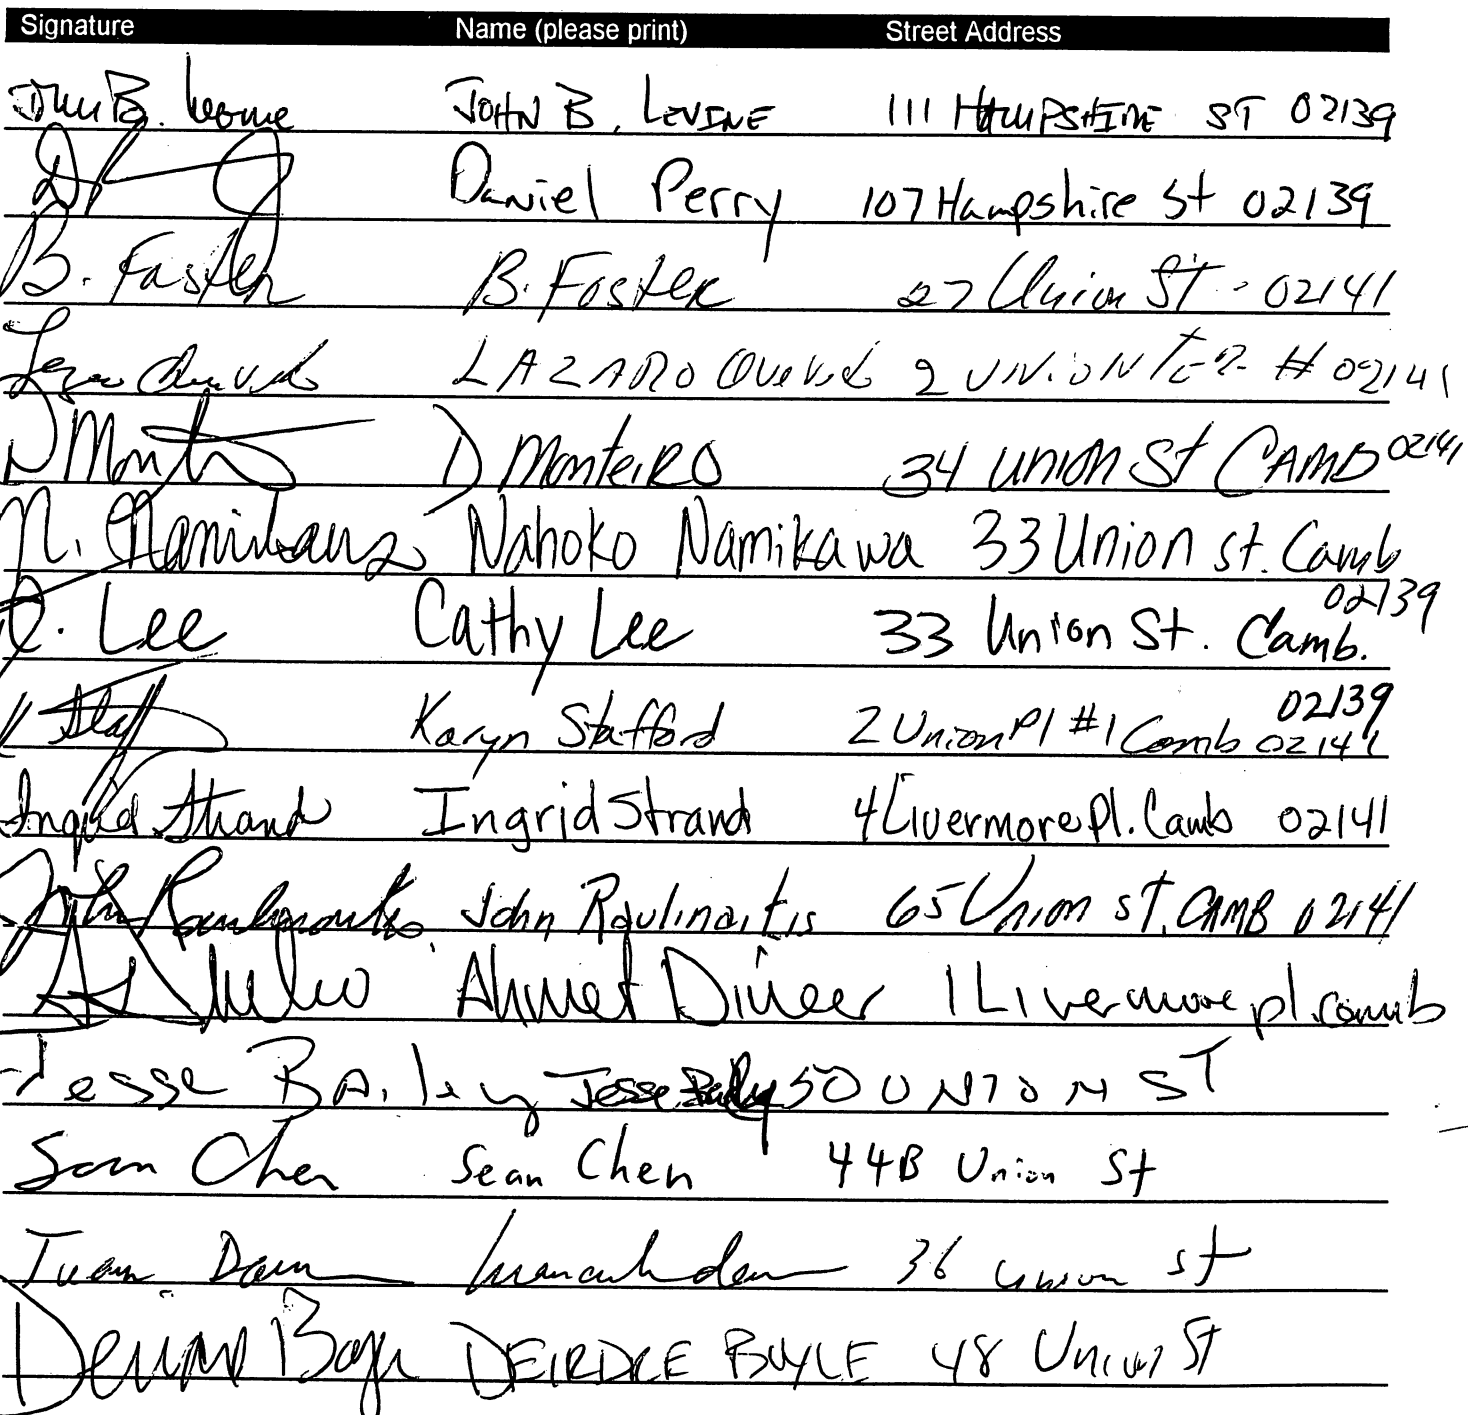 Signature Name (please print) Street Address
John B. Levine JOHN B. LEVINE 111 HAMPSHIRE ST 02139
Daniel Perry 107 Hampshire St 02139
B. Foster B. Foster 27 Union St - 02141
LAZARO Quevedo 2 UNION TER # 02141
D Monteiro 34 Union St CAMB 02141
N. Namikawa Nahoko Namikawa 33 Union st. Camb
02139
C. Lee Cathy Lee 33 Union St. Camb.
02139
Karyn Stafford 2 Union Pl #1 Camb 02141
Ingrid Strand Ingrid Strand 4 Livermore Pl. Camb 02141
John Raulinaitis 65 Union st. CAMB 02141
Ahmet Dincer 1 Livermore pl. camb
Jesse Bailey Jesse Bailey 50 UNION ST
Sean Chen Sean Chen 44B Union St
Tuan Dam 36 Union st
DEIRDRE BOYLE 48 Union St